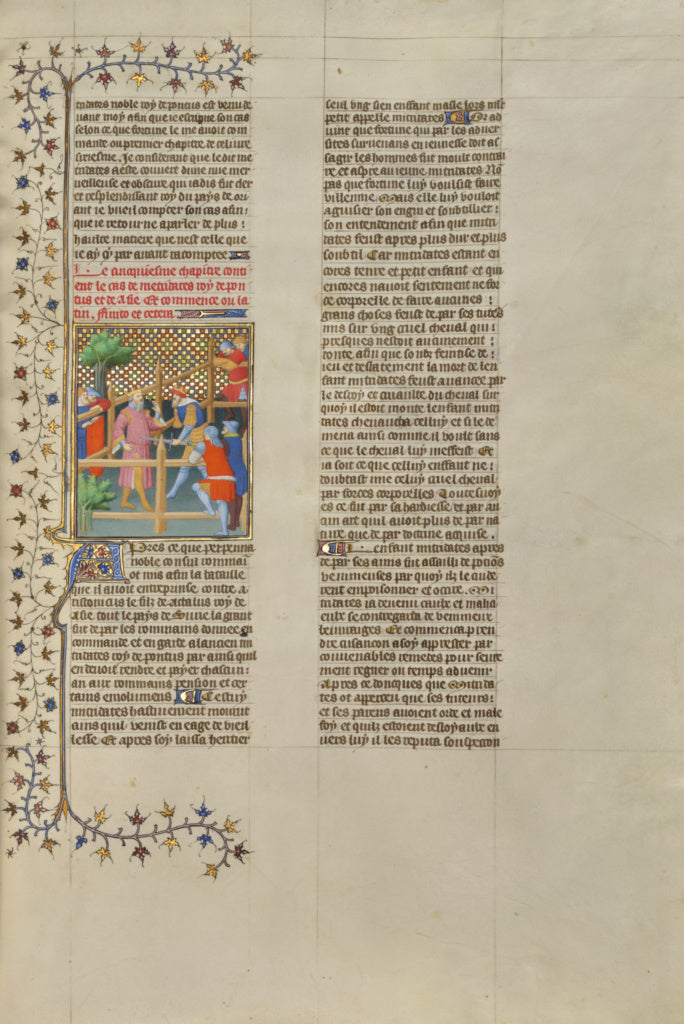 tridates noble roy de pontus est venu de
uant moy afin que ie escripue son cas
selon ce que fortune le me auoit com
mande ou premier chapitre de ce liure
sixiesme. Je considerant que ledit me
tridates a este couuert dune nue mer
ueilleuse et obscure qui iadis fut cler
et resplendissant roy du pays de ori
ant ie vueil compter son cas afin
que ie retourne a parler de plus
haulte matiere que nest celle que
ie ay par auant racomptee
Le cinquiesme chapitre conti
ent le cas de metridates roy de pon
tus et de Asie. Et commence ou la
tin. Finito et cetera
Apres ce que perpenna
noble consul rommai
ot mis afin la bataille
que il auoit entreprinse contre a
ristonicus le filz de actalus roy de
Asie. tout le pays de Surie la grant
fut de par les rommains donnee en
commande et en garde a lancien mi
tridates roy de pontus par ainsi quil
en deuoit rendre et payer chascun
an aux rommains pension et cer
tains emolumens Cestuy
mitridates hastiuement mourut
ains quil venist en eage de vieil
lesse. Et apres soy laissa heritier
seul vng sien enffant masle lors
petit appelle mitridates Or ad
uint que fortune qui par les aduer
sites suruenans en ieunesse doit as
sagir les hommes fut moult contrai
re et aspre au ieune mitridates No
pas que fortune luy voulsist faire
villennie. Mais elle luy vouloit
aguisier son engin et soubtillier
son entendement afin que mitri
dates feust apres plus dur et plus
soubtil Car mitridates estant en
cores tenre et petit enfant et qui
encores nauoit sentement ne for
ce corporelle de faire aucunes
grans choses feust de par ses tuteurs
mis sur vng cruel cheval qui
presques nestoit aucunement
donte. afin que soubz feintise de
ieu et desbatement la mort de len
fant mitridates feust auancee par
le desroy et cruaulte du cheual sur
quoy il estoit monte lenfant mitri
dates cheuaucha celluy et si le de
mena ainsi comme il voult sans
ce que le cheual luy meffeist. Et
ia soit ce que celluy enffant ne
doubtast mie celuy cruel cheual
par forces corporelles Toutesuoy
es ce fut par sa hardiesse et par au
cun art quil auoit plus de par na
ture que de par doctrine acquise.
Lenfant mitridates apres
de par ses amis fut assailli de poisos
venimeuses par quoy ilz le cuide
rent empoisonner et occire. Mi
tridates ia deuenu caulx et mali
eulx se contregarda de venimeux
beuuraiges Et commenca pren
dre cusancon a soy apprester par
conuenables remedes pour seure
ment regner ou temps aduenir
Apres ce donques que Mitrida
tes ot apperceu que ses tuteurs
et ses parens auoient orde et male
foy et quilz estoient desloyaulx en
uers luy il les reputa souspecon